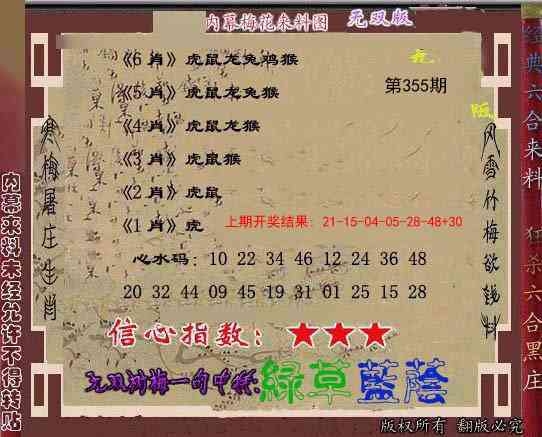 内幕梅花来料图 无双版
《6 肖》虎鼠龙兔鸡猴
《5 肖》虎鼠龙兔猴
第355期
《4 肖》虎鼠龙猴
《3 肖》虎鼠猴
《2 肖》虎鼠
《1 肖》虎
上期开奖结果：21-15-04-05-28-48+30
心水码：10 22 34 46 12 24 36 48
20 32 44 09 45 19 31 01 25 15 28
信心指数：★★★
绿草蓝荫
寒梅屠庄生肖
风雪竹梅欲钱料
内幕来料未经允许不得转贴
经典六合来料 狂杀六合黑庄
版权所有 翻版必究